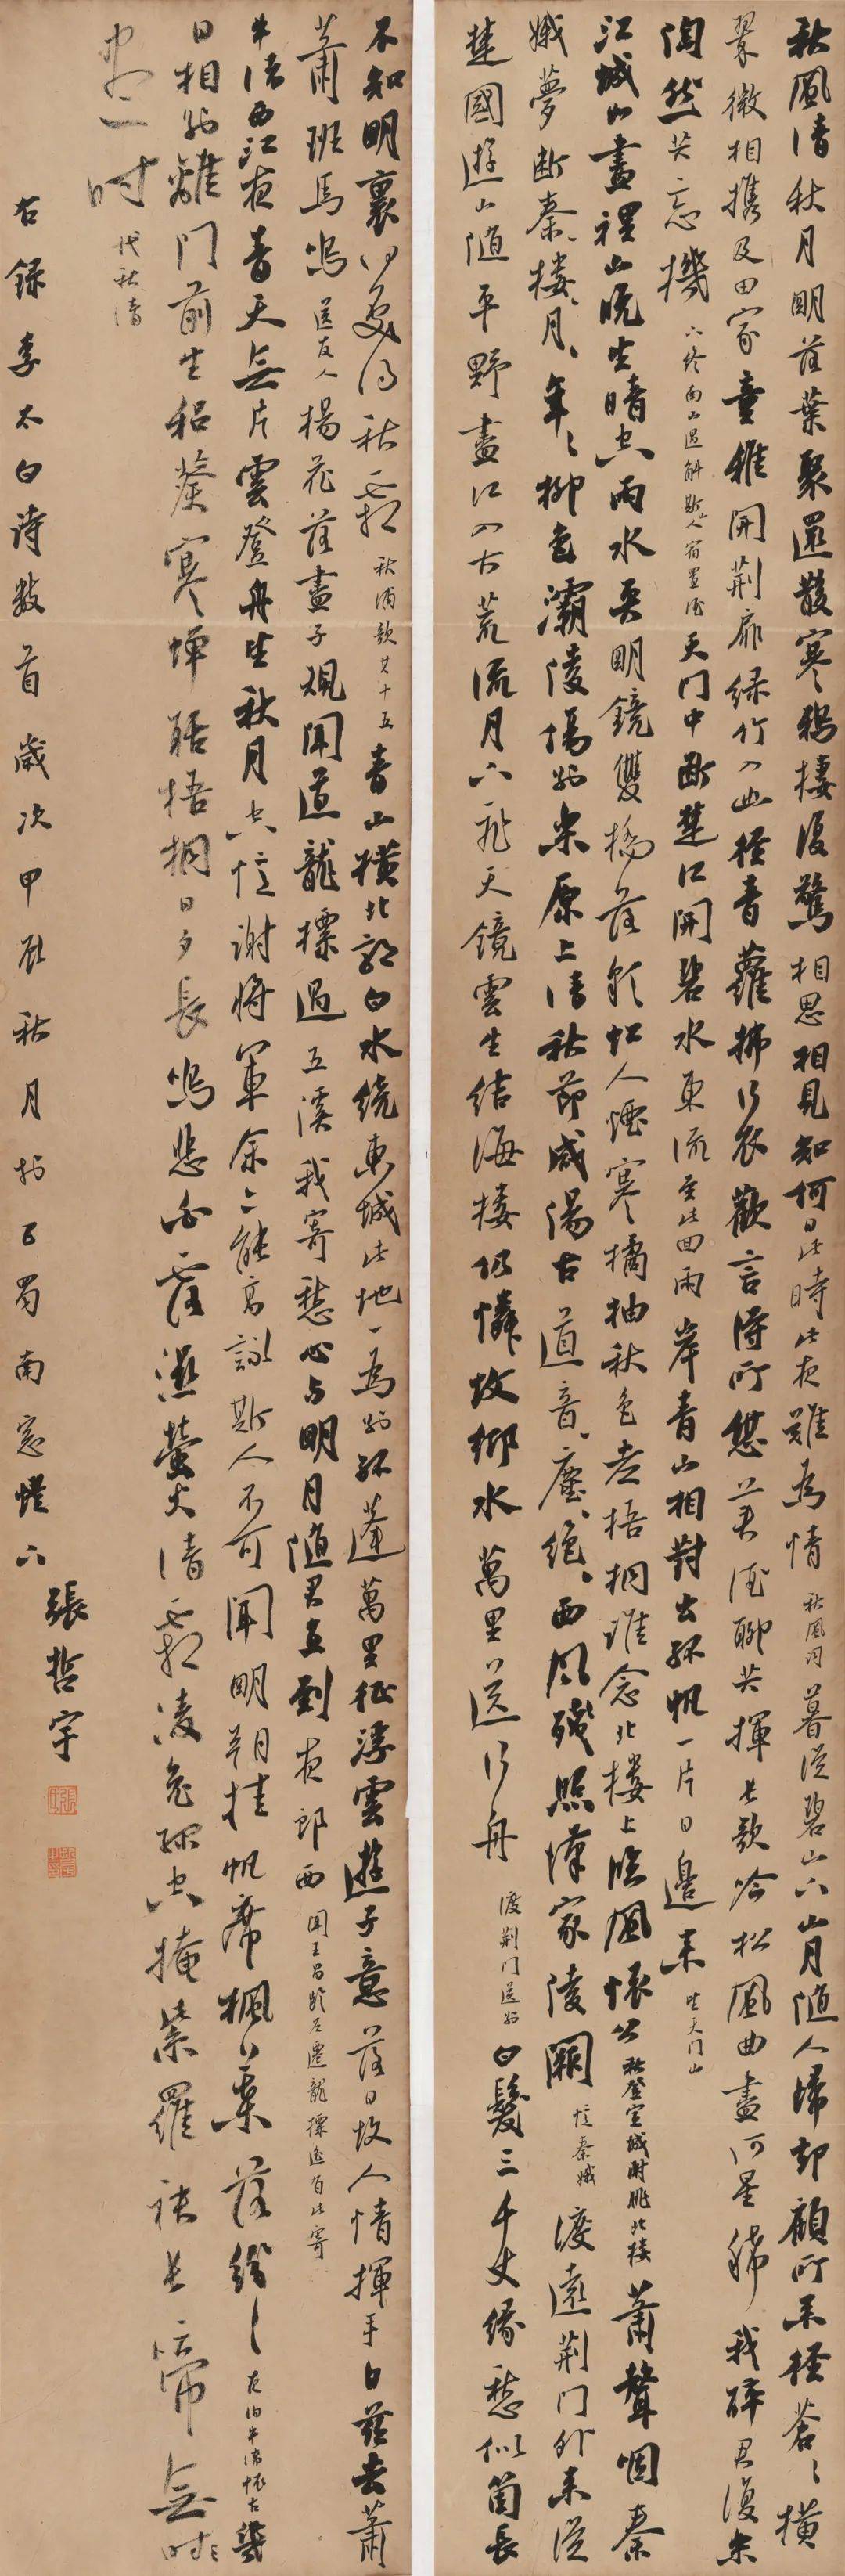 秋風清秋月明落葉聚還散寒鴉棲復驚相思相見知何日此時此夜難為情秋風词暮從碧山下山月隨人歸却顧所來徑蒼〻橫
翠微相携及田家童稚開荆扉綠竹入幽徑青蘿拂行衣歡言得所憩美酒聊共揮長歌吟松風曲盡河星稀我醉君復樂
陶然共忘機下终南山過斛斯山人宿置酒天門中斷楚江開碧水東流至此回兩岸青山相對出孤帆一片日邊來望天门山
江城如畫裡山晚望晴空兩水夾明鏡雙橋落彩虹人煙寒橘柚秋色老梧桐誰念北樓上臨風懷謝公秋登宣城謝脁北樓簫聲咽秦
娥夢斷秦樓月秦樓月年〻柳色灞陵傷別樂原上清秋節咸陽古道音塵絕音塵絕西風殘照漢家陵闕忆秦娥渡遠荆门外來從
楚國遊山隨平野盡江入大荒流月下飛天鏡雲生结海樓仍憐故鄉水萬里送行舟渡荆门送别白髮三千丈緣愁似箇長
不知明鏡裏何處得秋霜秋浦歌其十五青山橫北郭白水繞東城此地一為別孤蓬萬里征浮雲遊子意落日故人情揮手自茲去蕭
蕭班馬鳴送友人楊花落盡子規聞道龍標過五溪我寄愁心与明月隨君直到夜郎西闻王昌龄左遷龍標遥有此寄
牛渚西江夜青天無片雲登舟望秋月空忆謝将軍余亦能高詠斯人不可聞明朝挂帆席楓葉落紛〻夜泊牛渚懷古幾
日相別離門前生穭葵寒蟬聒梧桐日夕長鳴悲白露濕螢火清霜凌兔絲空掩紫羅袂長啼無時
盡时代秋情
右録李太白诗數首歲次甲辰秋月於巴蜀南窓燈下
張哲宇